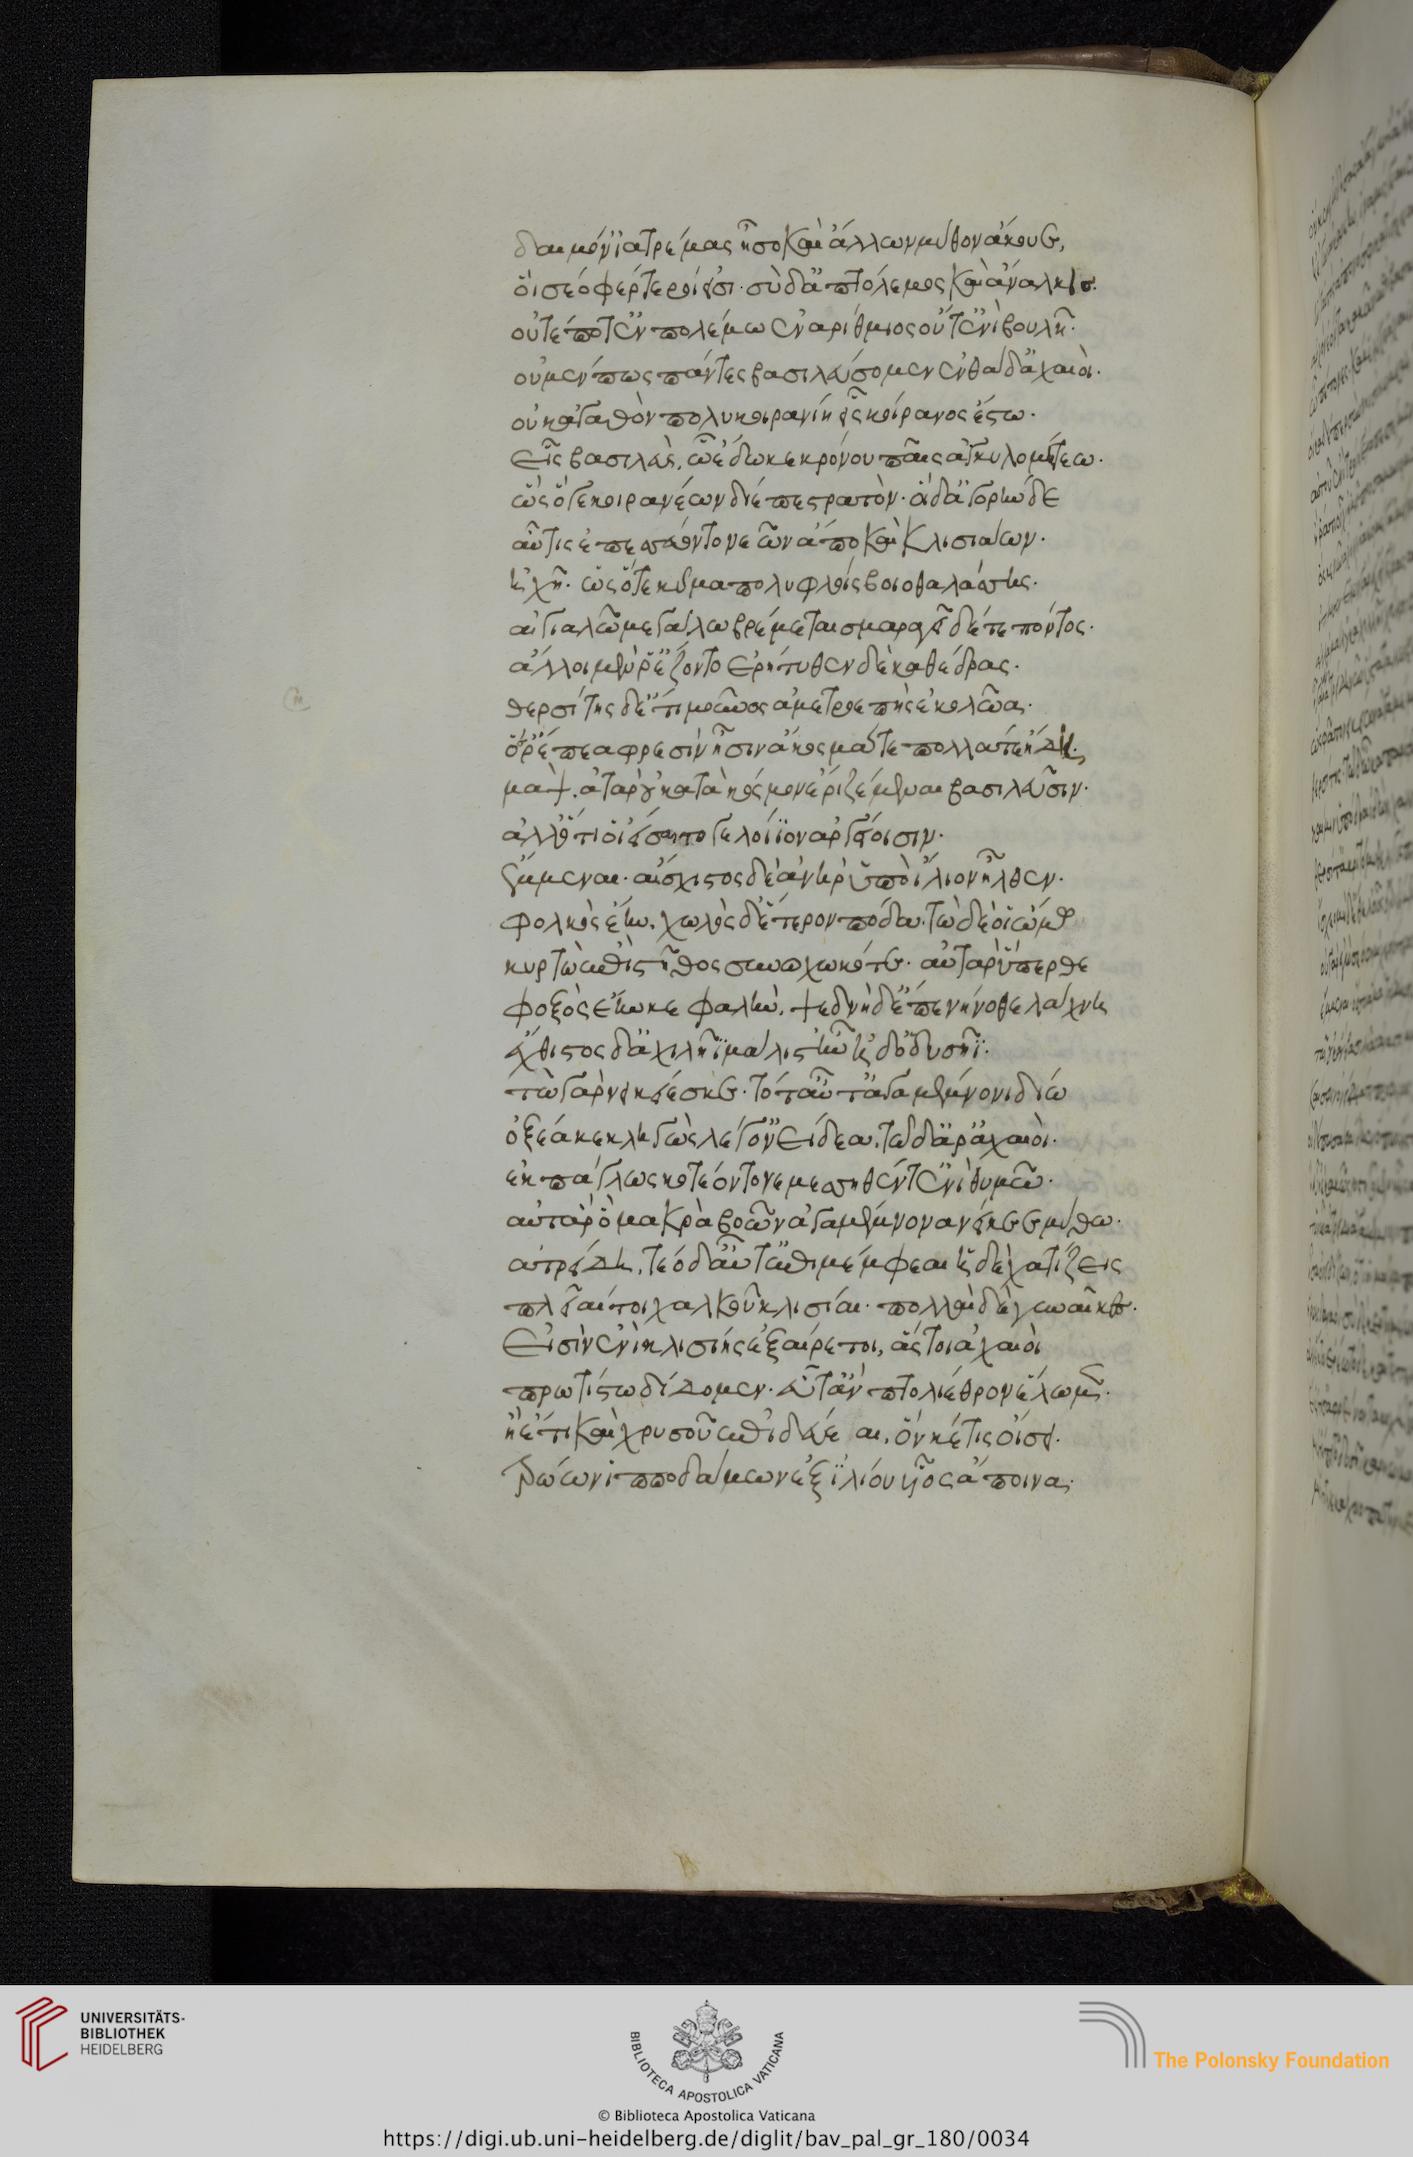 δαιμόνι' ἀτρέμας ἧσο καὶ ἄλλων μύθον ἄκουε,
ὅι σέο φέρτεροί εἰσι· σὺ δ' ἀπτόλεμος καὶ ἄναλκις.
οὔτέ ποτ' ἐν πολέμω ἐναρίθμιος οὔτ' ἐνὶ βουλῇ·
οὐ μέν πως πάντες βασιλεύσομεν ἐνθάδ' ἀχαιοί.
οὐκ ἀγαθὸν πολυκοιρανίη εἷς κοίρανος ἔστω·
εἷς βασιλεὺς, ὧ ἔδωκε κρόνου παῖς ἀγκυλομήτεω.
ὣς ὅγε κοιρανέων δίεπε στρατὸν· ἃ δ' ἀγορὴν δὲ
αὖτις ἐπεσσεύοντο νεῶν ἄπο καὶ κλισιάων.
ἠχῇ· ὡς ὅτε κῦμα πολυφλοίσβοιο θαλάσσης.
αἰγιαλῶ μεγάλω βρέμεται σμαραγεῖ δέ τε πόντος.
ἄλλοι μέν ῥ' ἕζοντο ἐρήτυθεν δὲ καθέδρας.
θερσίτης δ' ἔτι μοῦνος ἀμετροεπὴς ἐκολῶα·
ὅς ῥ' ἔπεα φρεσὶν ᾗσιν ἄκοσμά τε πολλά τε ᾔδη.
μαψ. ἀτὰρ οὐ κατὰ κόσμον ἐριζέμεναι βασιλεῦσιν.
ἀλλ' ὅ τι οἱ εἴσαιτο γελοίϊον ἀργείοισιν.
ἔμμεναι· αἴσχιστος δὲ ἀνὴρ ὑπὸ ἴλιον ἦλθεν.
φολκὸς ἔην. χωλὸς δ' ἕτερον πόδα. τὼ δέ οἱ ὤμω
κυρτὼ ἐπὶ στῆθος συνοχωκότε· αὐτὰρ ὕπερθε
φοξὸς ἔην κεφαλὴν. ψεδνὴ δ' ἐπενήνοθε λάχνη
ἔχθιστος δ' ἀχιλῆϊ μάλιστ' ἦν ἠδ' ὀδυσῆϊ.
τὼ γὰρ νεικείεσκε· τότ' αὖτ' ἀγαμέμνονι δίω
ὀξέα κεκληγὼς λέγ' ὀνείδεα. τῶ δ' ἄρ' ἀχαιοὶ.
ἐκπάγλως κοτέοντο νεμέσσηθέν τ' ἐνὶ θυμῶ.
αὐτὰρ ὁ μακρὰ βοῶν ἀγαμέμνονα νείκεε μύθω·
ἀτρείδη, τέο δ' αὖτ' ἐπιμέμφεαι ἠδὲ χατίζεις
πλεῖαί τοι χαλκοῦ κλισίαι· πολλαὶ δὲ γυναῖκες.
εἰσὶν ἐνὶ κλισίης ἐξαίρετοι, ἅς τοι ἀχαιοὶ
πρωτίστω δίδομεν· εὖτ' ἂν πτολίεθρον ἕλωμεν.
ἢ ἔτι καὶ χρυσοῦ ἐπιδεύεαι, ὅν κέ τις οἴσει.
τρώων ἱπποδάμων ἐξ ἰλίου υἷος ἄποινα.
UNIVERSITÄTS-
BIBLIOTHEK
HEIDELBERG
BIBLIOTECA APOSTOLICA VATICANA
The Polonsky Foundation
© Biblioteca Apostolica Vaticana
https://digi.ub.uni-heidelberg.de/diglit/bav_pal_gr_180/0034